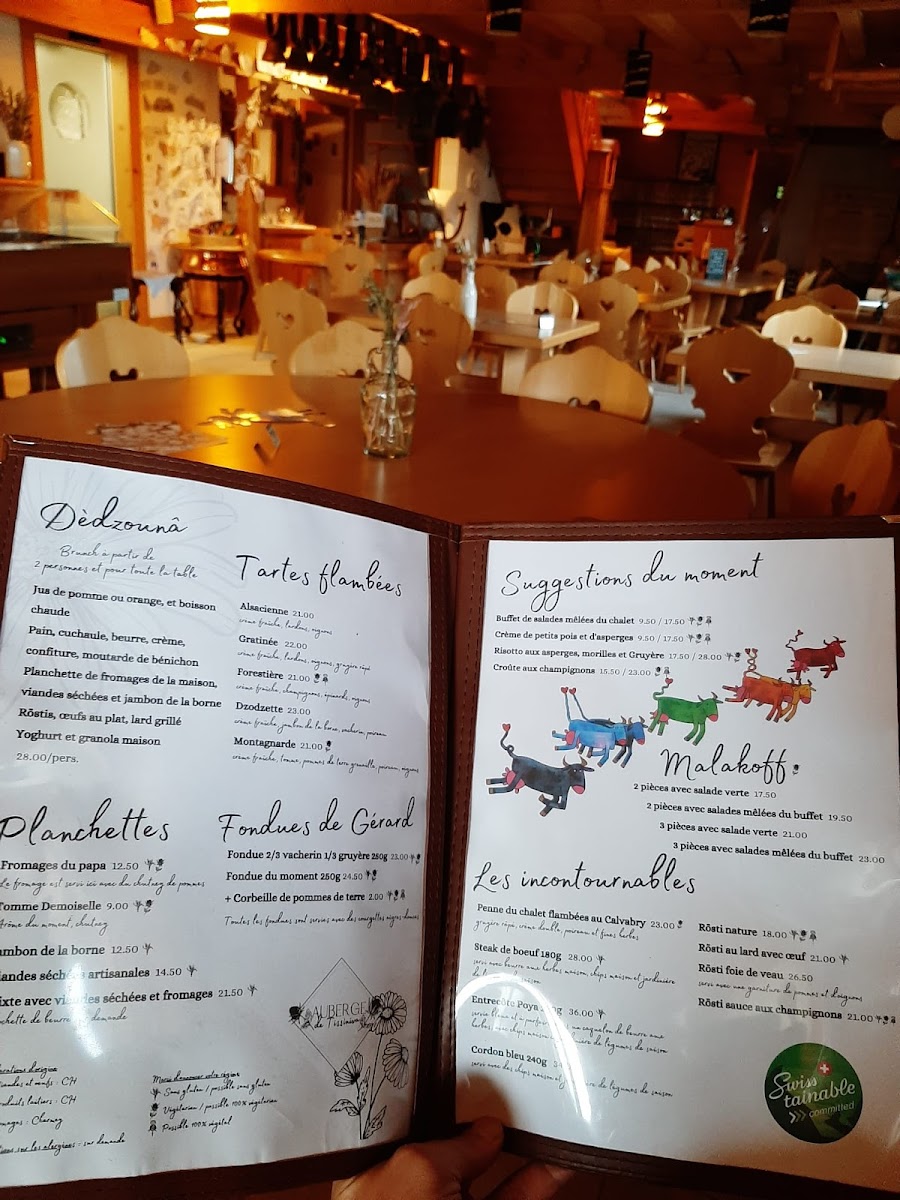 Dèdzounâ
Brunch à partir de
2 personnes et pour toute la table
Jus de pomme ou orange, et boisson
chaude
Pain, cuchaule, beurre, crème,
confiture, moutarde de bénichon
Planchette de fromages de la maison,
viandes séchées et jambon de la borne
Röstis, œufs au plat, lard grillé
Yoghurt et granola maison
28.00/pers.
Tartes flambées
Alsacienne 21.00
crème fraîche, lardons, oignons
Gratinée 22.00
crème fraîche, lardons, oignons, gruyère râpé
Forestière 21.00
crème fraîche, champignons, épinards, oignons
Dzodzette 23.00
crème fraîche, jambon de la borne, vacherin, poireau
Montagnarde 21.00
crème fraîche, tomme, pommes de terre grenaille, poireau, oignons
Planchettes
Fromages du papa 12.50
Le fromage est servi ici avec du chutney de pommes
Tomme Demoiselle 9.00
Arôme du moment, chutney
ambon de la borne 12.50
iandes séchées artisanales 14.50
ixte avec viandes séchées et fromages 21.50
chette de beurre demande
Fondues de Gérard
Fondue 2/3 vacherin 1/3 gruyère 250g 23.00
Fondue du moment 250g 24.50
+ Corbeille de pommes de terre 2.00
Toutes les fondues sont servies avec des courgettes aigres-douces
AUBERGE
de Tissiniva
Viandes et œufs : CH
produits laitiers : CH
Fromages : Charmey
sur les allergènes : sur demande
Sans gluten / possible sans gluten
Végétarien / possible 100% végétarien
Possible 100% végétal
Suggestions du moment
Buffet de salades mêlées du chalet 9.50 / 17.50
Crème de petits pois et d'asperges 9.50 / 17.50
Risotto aux asperges, morilles et Gruyère 17.50 / 28.00
Croûte aux champignons 15.50 / 23.00
Malakoff
2 pièces avec salade verte 17.50
2 pièces avec salades mêlées du buffet 19.50
3 pièces avec salade verte 21.00
3 pièces avec salades mêlées du buffet 23.00
Les incontournables
Penne du chalet flambées au Calvabry 23.00
gruyère râpé, crème double, poireau et fines herbes
Steak de boeuf 180g 28.00
servi avec beurre aux herbes maison, chips maison et jardinière
de légumes de saison
Entrecôte Poya 36.00
de beurre aux
herbes, chips maison légumes de saison
Cordon bleu 240g
servi avec des chips maison et de légumes de saison
Rösti nature 18.00
Rösti au lard avec œuf 21.00
Rösti foie de veau 26.50
servi avec une garniture de pommes et d'oignons
Rösti sauce aux champignons 21.00
Swiss
tainable
committed